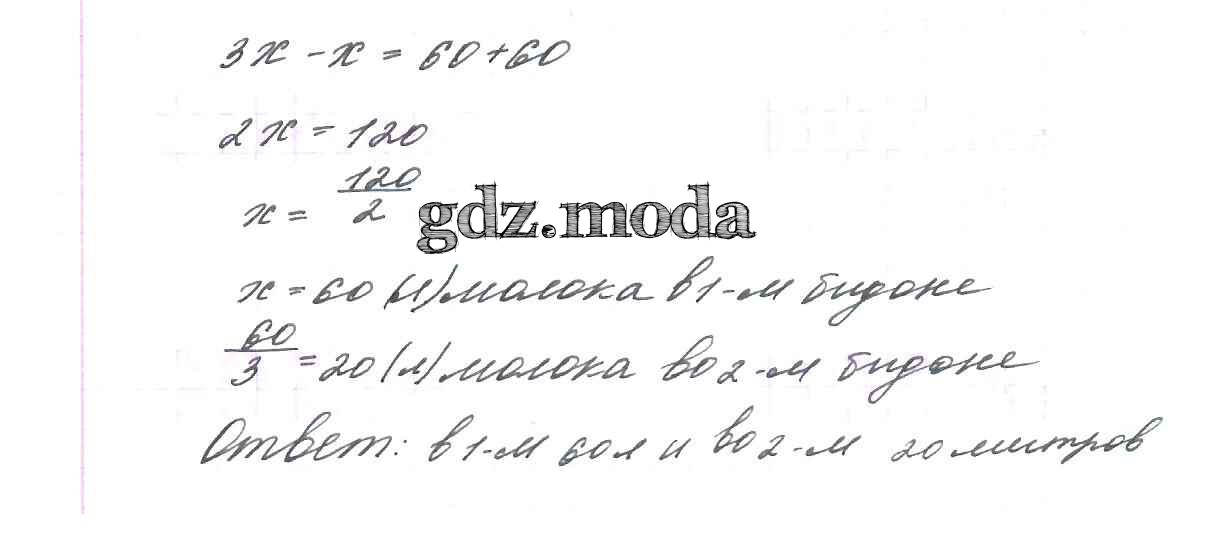 3x - x = 60+60
2x = 120
x = 120/2
gdz.moda
x = 60 (л) молока в 1-м бидоне
60/3 = 20 (л) молока во 2-м бидоне
Ответ: в 1-м 60 л и во 2-м 20 литров